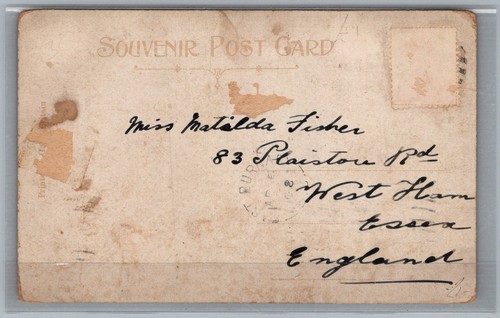 SOUVENIR POST CARD
Miss Matilda Fisher
83 Plaistow Rd
West Ham
Essex
England